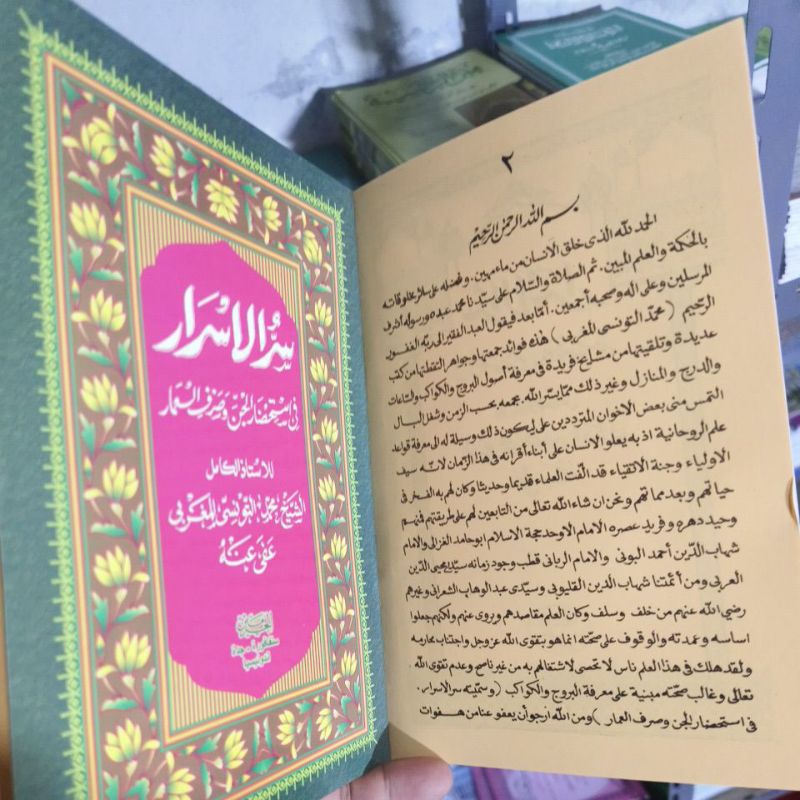 سر الاسرار
في استحضار الجن وصرف العمار
للاستاذ الكامل
الشيخ محمد التونسي المغربي
عفى عنه
٢
بسم الله الرحمن الرحيم
الحمد لله الذى خلق الأنسان من ماء مهين. وفضله على سائر مخلوقاته
بالحكمة والعلم المبين. ثم الصلاة والسلام على سيدنا محمد عبده ورسوله أشرف
المرسلين وعلى اله وصحبه أجمعين. أما بعد فيقول العبد الفقير الى ربه الغفور
الرحيم (محمد التونسى المغربى) هذه فوائد جمعتها وجواهر التقطتها من كتب
عديدة وتلقيتها من مشايخ فريدة فى معرفة أصول البروج والكواكب والساعات
والدرج والمنازل وغير ذلك مما يسر الله. بجمعه بحسب الزمن وشغل البال
التمس منى بعض الاخوان المترددين على ليكون ذلك وسيلة له الى معرفة قواعد
علم الروحانية اذ به يعلو الانسان على أبناء أقرانه فى هذا الزمان لانه سيف
الاولياء وجنة الاتقياء قد ألفت العلماء قديما وحديثا وكان لهم به الفخر فى
حياتهم وبعد مماتهم ونحن ان شاء الله تعالى من التابعين لهم على طريقتهم فمنهم
وحيد دهره وفريد عصره الامام الاوحد حجة الاسلام ابو حامد الغزالى والامام
شهاب الدين أحمد البونى والامام الربانى قطب وجود زمانه سيدى محيى الدين
العربى ومن أئمتنا شهاب الدين القليوبى وسيدى عبد الوهاب الشعرانى وغيرهم
رضى الله عنهم من خلف وسلف وكان العلم مقاصدهم وبروى عنهم ولكنهم جعلوا
اساسه وعمدته والوقوف على صحته انما هو بتقوى الله عز وجل واجتناب محارمه
ولقد هلك فى هذا العلم ناس لا تحصى لاشتغالهم به من غير ناصح وعدم تقوى الله
تعالى وغالب صحته مبنية على معرفة البروج والكواكب (وسميته سر الاسرار
فى استحضار الجن وصرف العمار) ومن الله ارجو أن يعفو عنا من هفوات